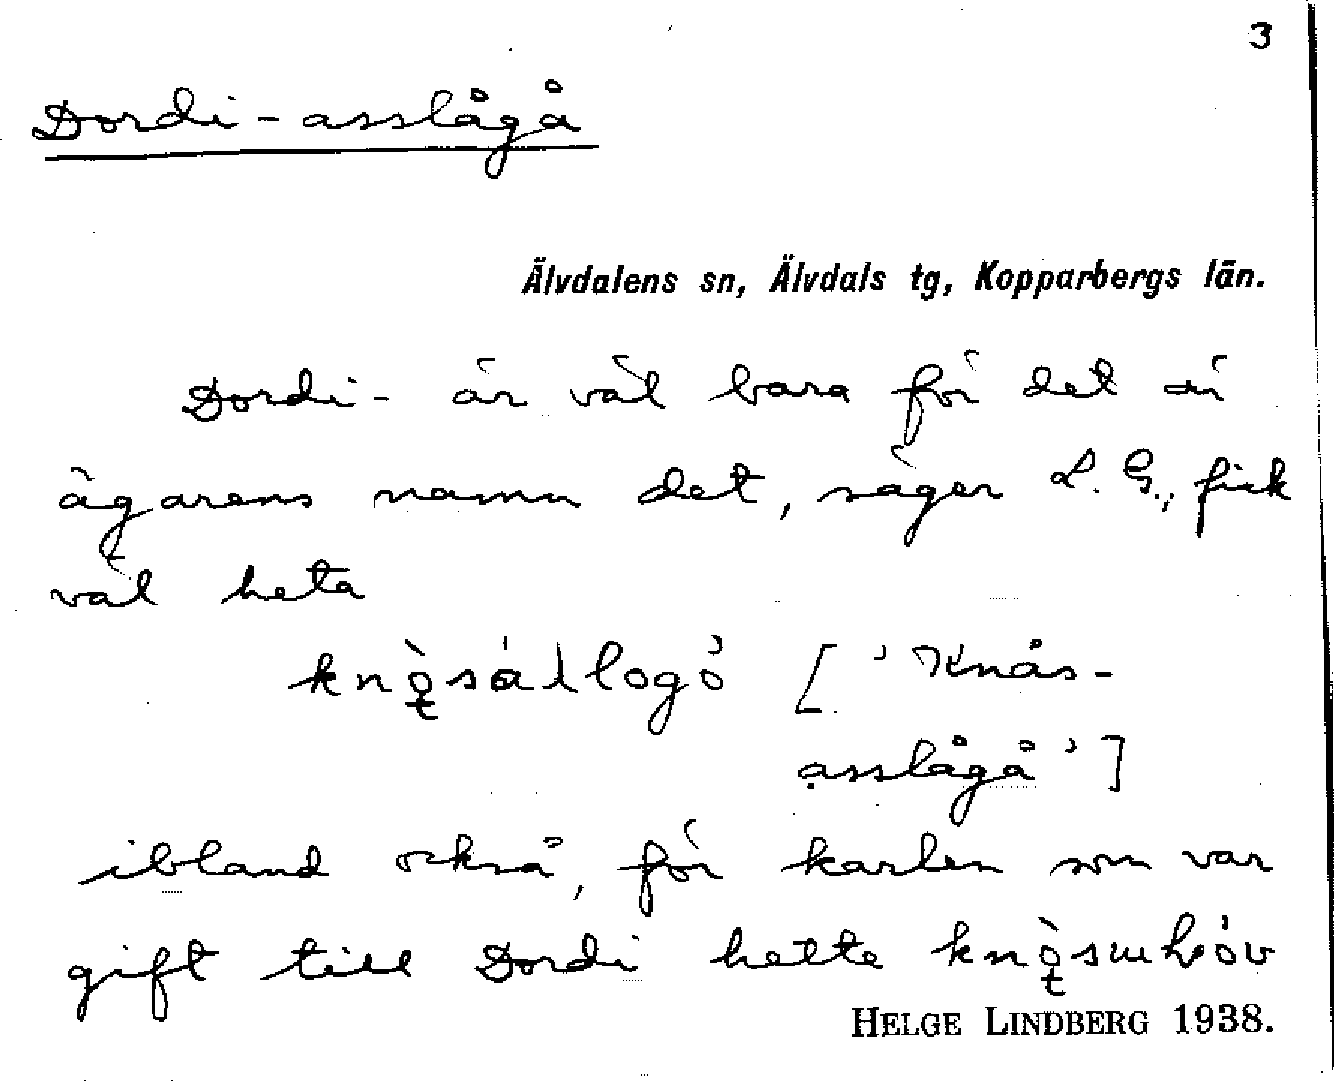 3
Dordi-asslågå
Älvdalens sn, Älvdals tg, Kopparbergs län.
Dordi- är väl bara för det är
ägarens namn det, säger L. G., fick
väl heta
[' Knås-
asslågå']
ibland också, för karlen som var
gift till Dordi hette
HELGE LINDBERG 1938.